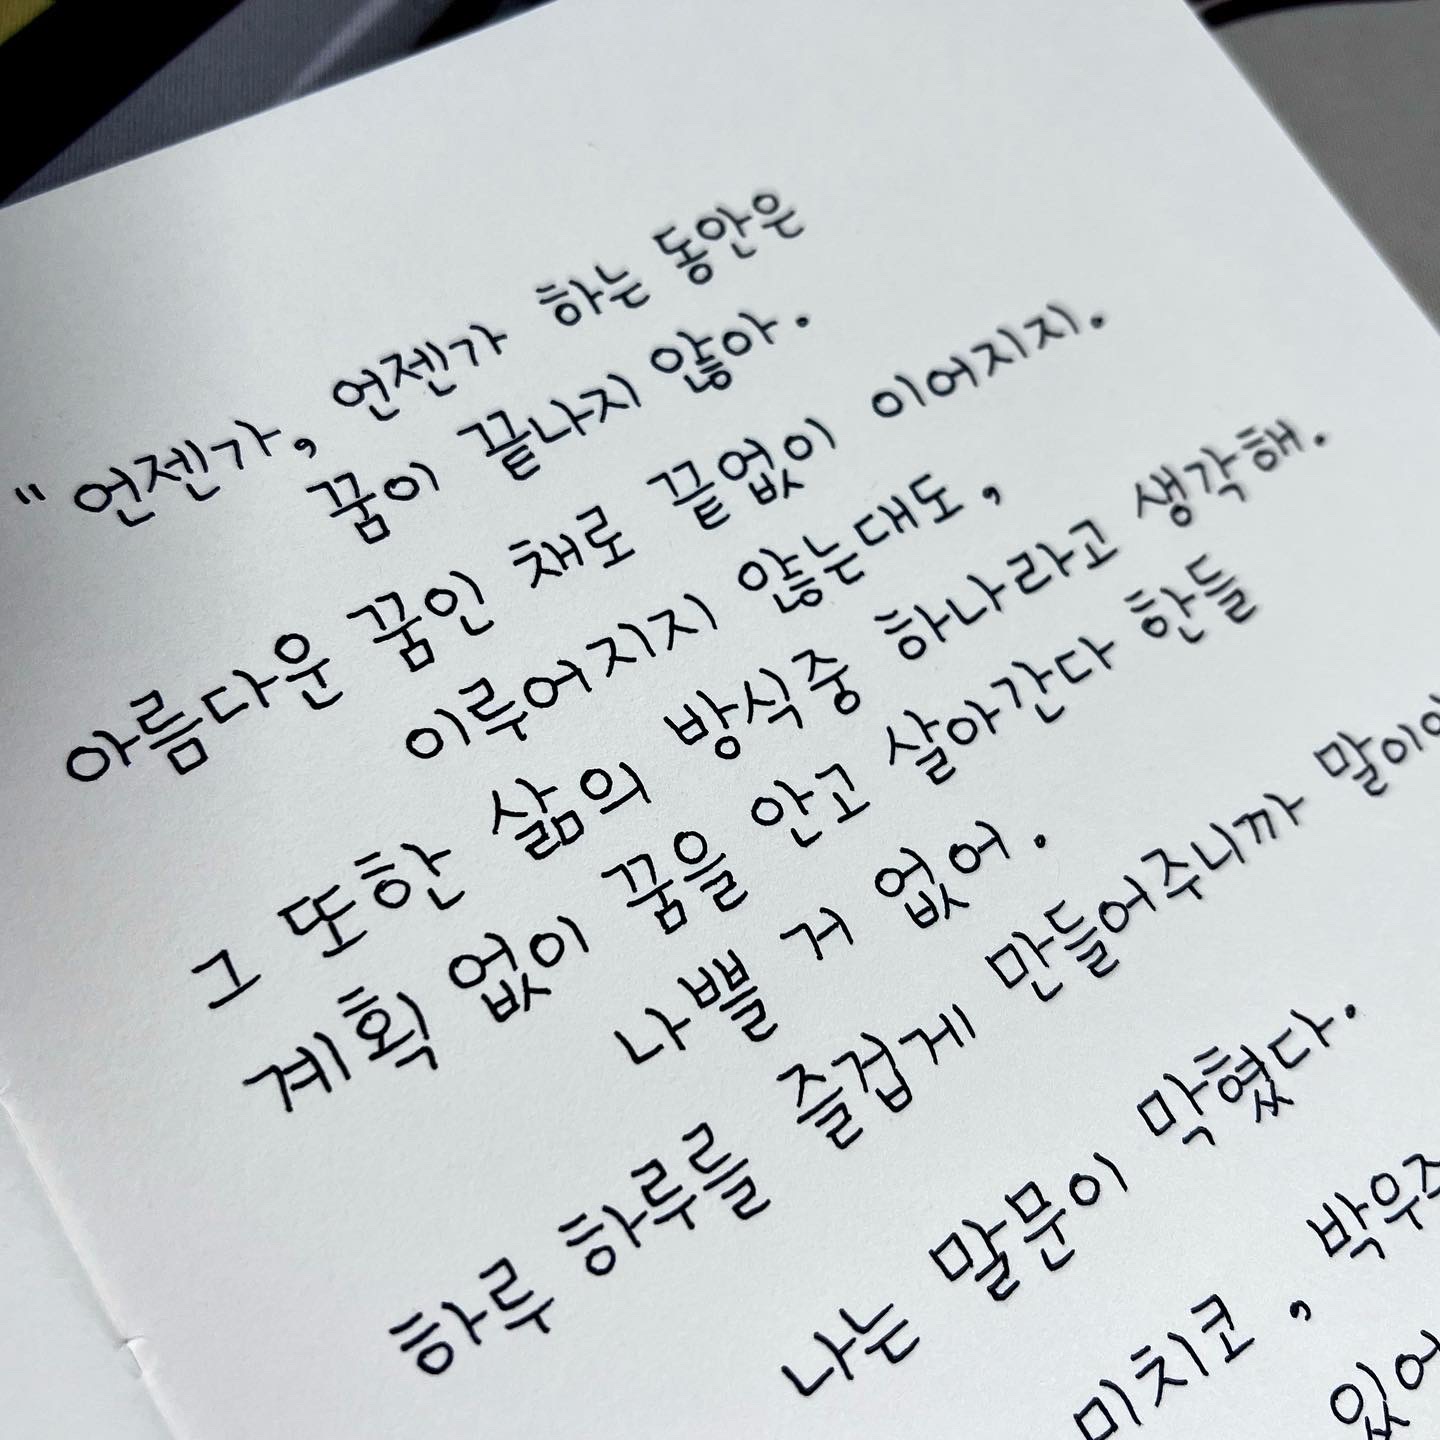 "언젠가, 언젠가 하는 동안은
꿈이 끝나지 않아.
아름다운 꿈인 채로 끝없이 이어지지.
이루어지지 않는대도,
그 또한 삶의 방식중 하나라고 생각해.
계획 없이 꿈을 안고 살아간다 한들
나쁠 거 없어.
하루 하루를 즐겁게 만들어주니까 말이야
나는 말문이 막혔다.
미치코, 박우
있어